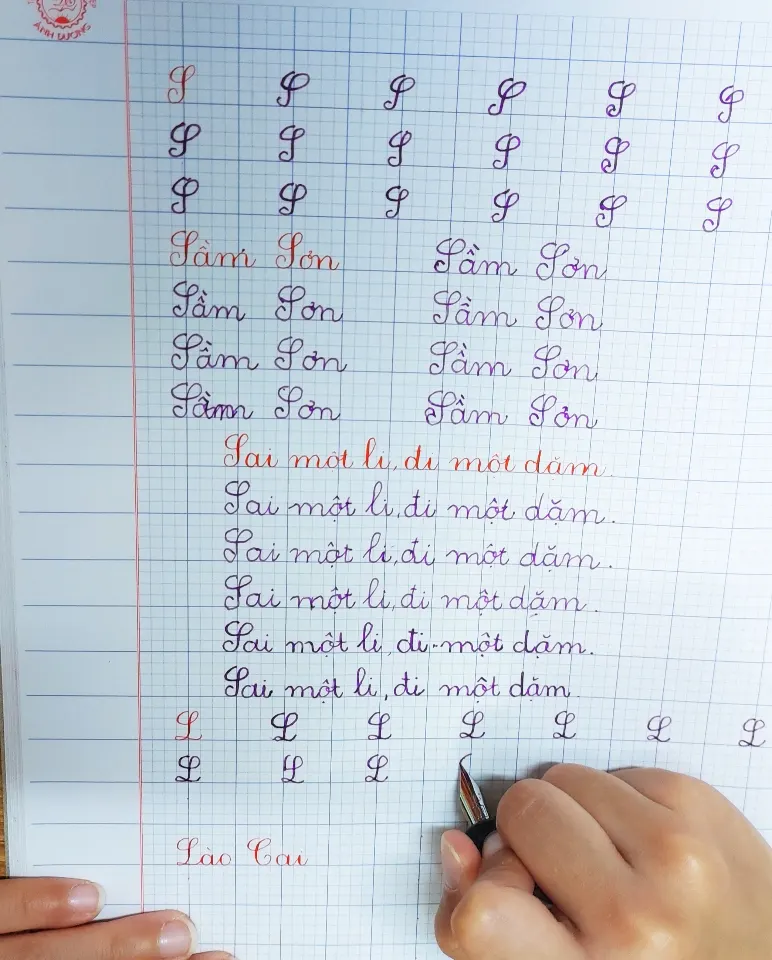 ÁNH DƯƠNG
S S S S S S
S S S S S S
S S S S S S
Sầm Sơn Sầm Sơn
Sầm Sơn Sầm Sơn
Sầm Sơn Sầm Sơn
Sầm Sơn Sầm Sơn
Sai một li, đi một dặm.
Sai một li, đi một dặm.
Sai một li, đi một dặm.
Sai một li, đi một dặm.
Sai một li, đi một dặm.
Sai một li, đi một dặm
L L L L L L L
L L L
Lào Cai